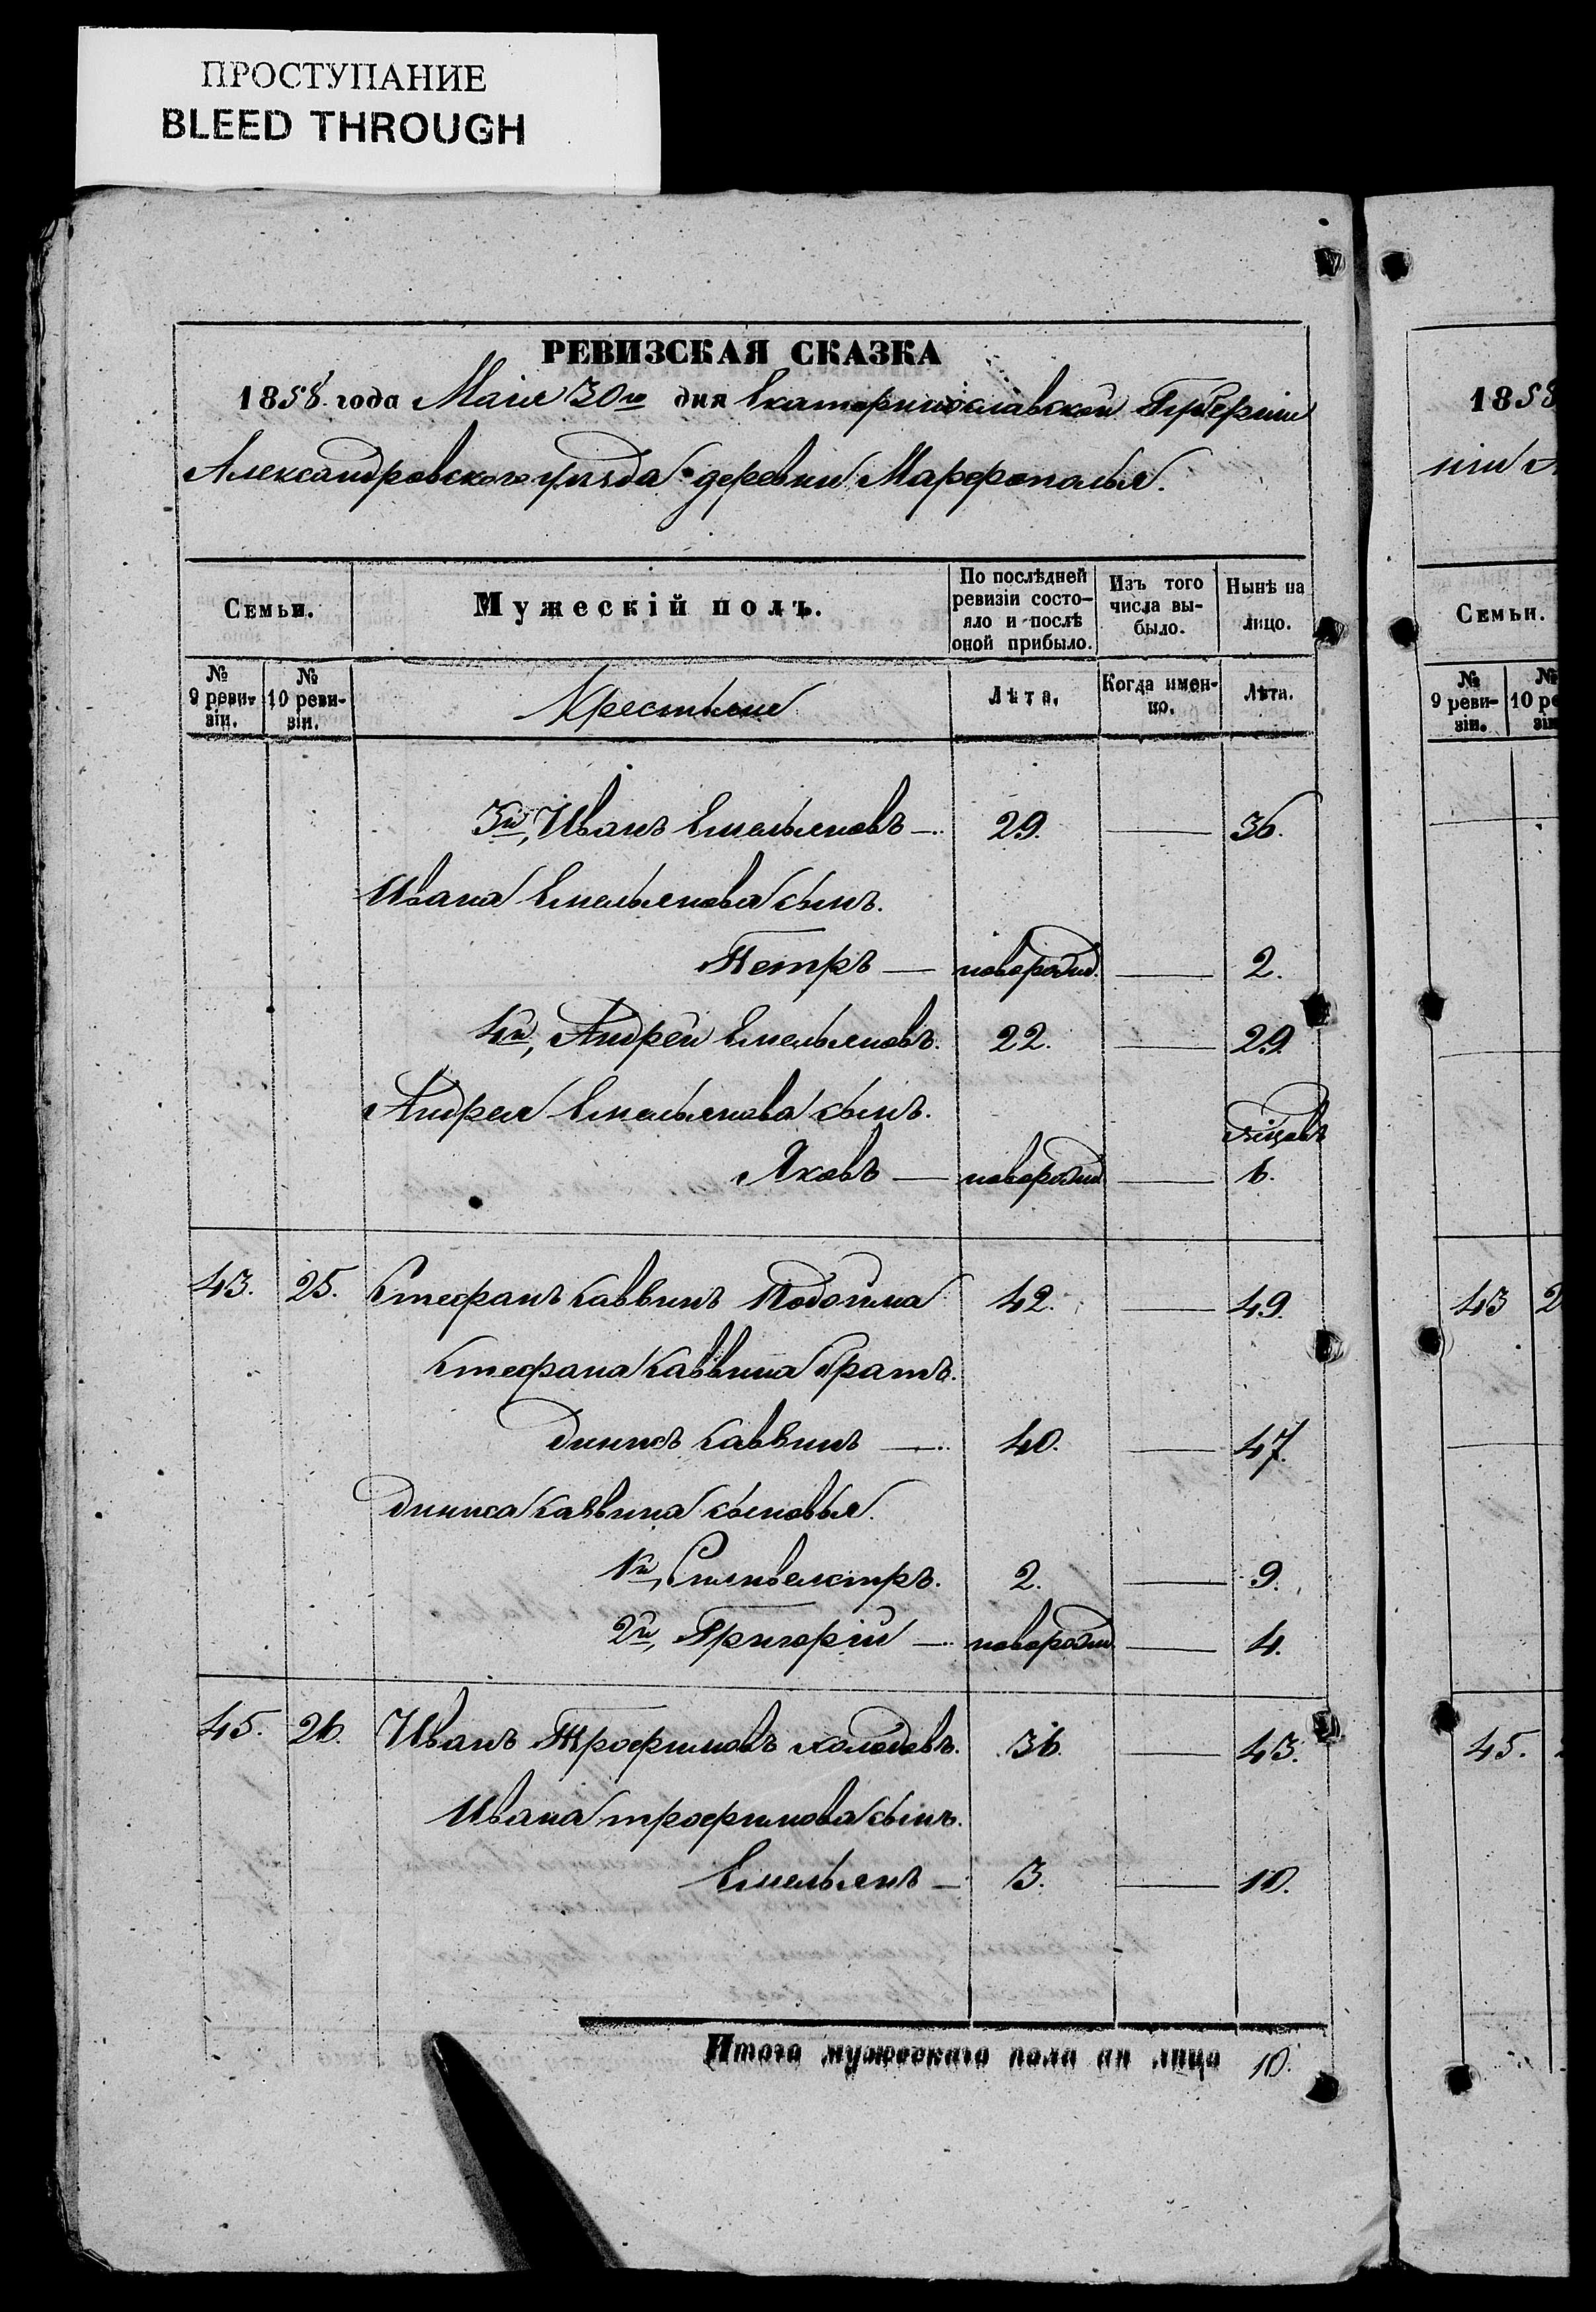 ПРОСТУПАНИЕ
BLEED THROUGH
РЕВИЗСКАЯ СКАЗКА
1858. года Маія 30го дня Екатеринославской Губерніи
Александровского уѣзда деревни Марфополья.
Семьи.
Мужескій полъ.
По послѣдней ревизіи состо-
яло и послѣ
оной прибыло.
Изъ того
числа вы-
было.
Нынѣ на
лицо.
№
9 реви-
зіи.
№
10 реви-
зіи.
Крестьяне
Лѣта.
Когда имен-
но.
Лѣта.
3й, Иванъ Емельяновъ — 29. — 36.
Ивана Емельянова сынъ.
Петръ — новорожд. — 2.
4й, Андрей Емельяновъ. 22. — 29.
Андрея Емельянова сынъ.
Яковъ — новорожд — 6.
43. 25. Стефанъ Саввинъ 42. — 49.
Стефана Саввина братъ.
Динисъ Саввинъ — 40. — 47.
Диниса Саввина сыновья.
1й, Сильвестръ. 2. — 9.
2й, Григорій — новорожд — 4.
45. 26. Иванъ Трофимовъ Холодовъ. 36. — 43.
Ивана Трофимова сынъ.
Емельянъ — 3. — 10.
Итого мужескаго пола на лицо 10.
1858
Семьи.
№
9 реви-
зіи.
№
10 ре
зіи
43 2
45.